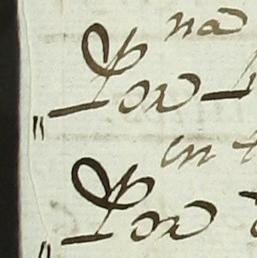 na
" Por
en
" Por